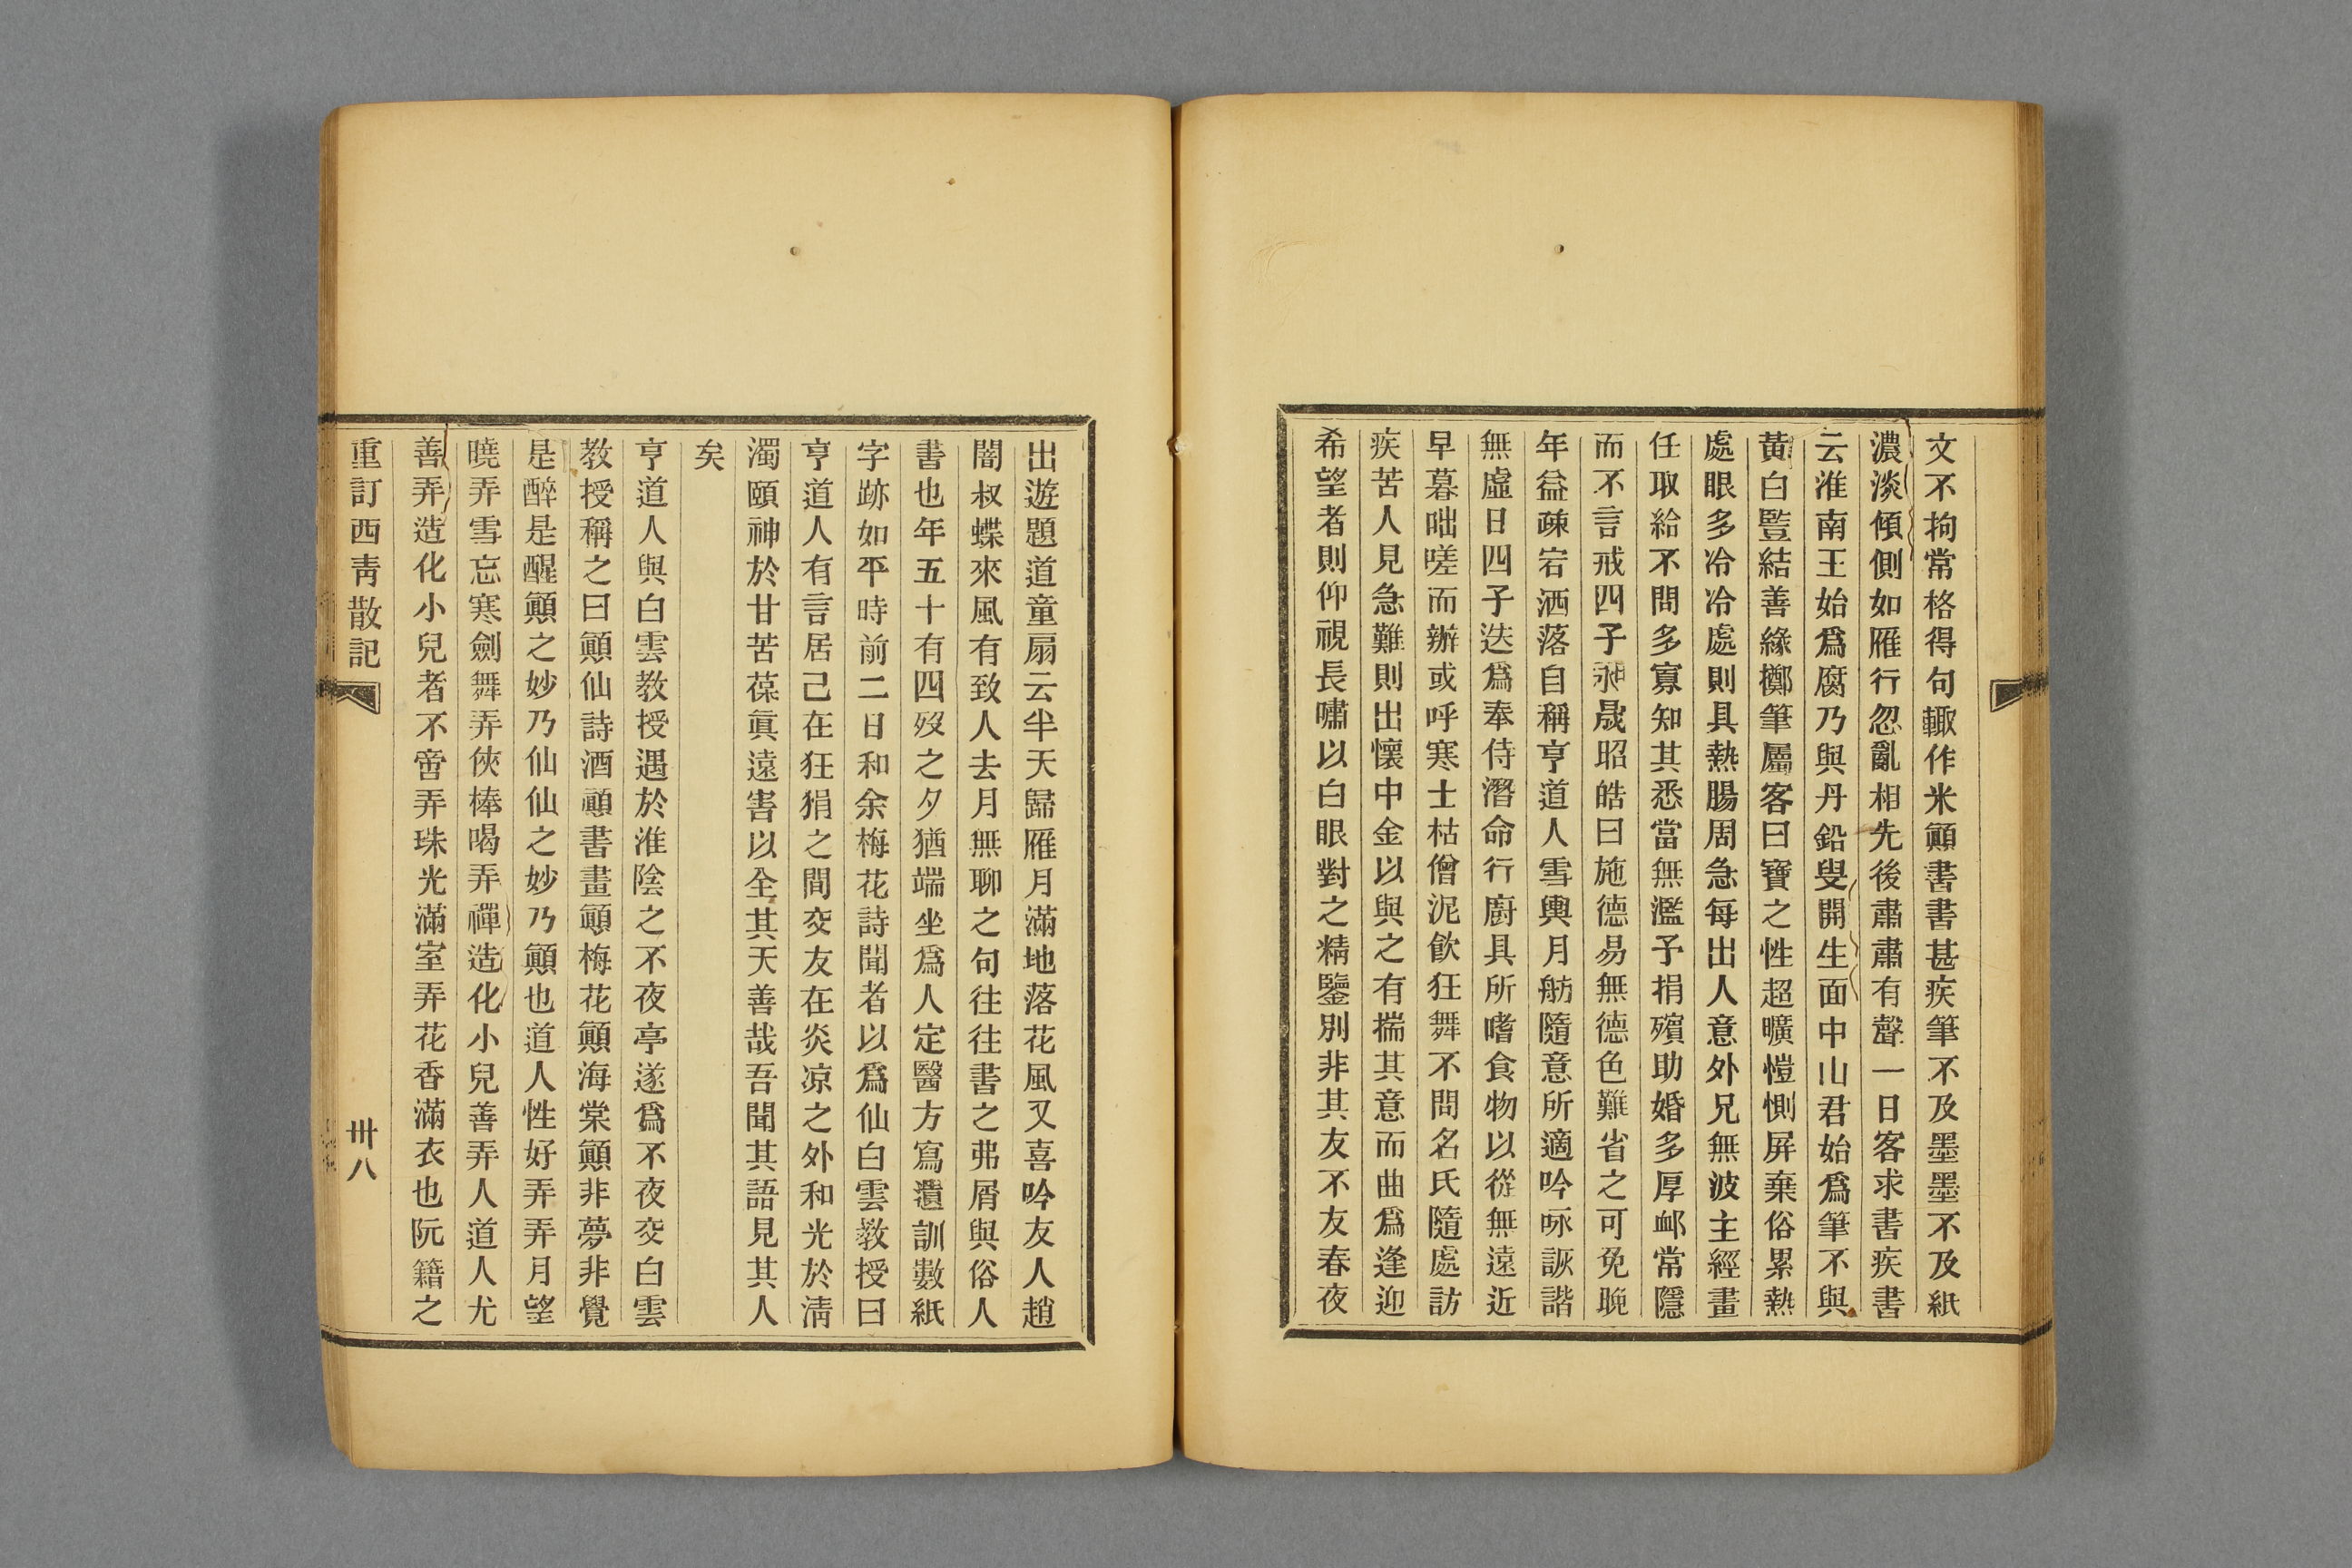 文不拘常格得句輙作米顚書書甚疾筆不及墨墨不及紙
濃淡傾側如雁行忽亂相先後肅肅有聲一日客求書疾書
云淮南王始爲腐乃與丹鉛叟開生面中山君始爲筆不與
黃白豎結善緣擲筆屬客曰寶之性超曠愷惻屏棄俗累熱
處眼多冷冷處則具熱腸周急每出人意外兄無波主經畫
任取給不問多寡知其悉當無濫予捐殯助婚多厚邺常隱
而不言戒四子晟昭皓曰施德易無德色難省之可免晚
年益疎宕洒落自稱亨道人雪輿月舫隨意所適吟咏詼諧
無虛日四子迭爲奉侍潛命行廚具所嗜食物以從無遠近
早暮咄嗟而辦或呼寒士枯僧泥飮狂舞不問名氏隨處訪
疾苦人見急難則出懷中金以與之有揣其意而曲爲逢迎
希望者則仰視長嘯以白眼對之精鑒別非其友不友春夜
出遊題道童扇云半天歸雁月滿地落花風又喜吟友人趙
闇叔蝶來風有致人去月無聊之句往往書之弗屑與俗人
書也年五十有四歿之夕猶端坐爲人定醫方寫遺訓數紙
字跡如平時前二日和余梅花詩聞者以爲仙白雲教授曰
亨道人有言居己在狂狷之間交友在炎凉之外和光於淸
濁頤神於甘苦葆眞遠害以全其天善哉吾聞其語見其人
矣
亨道人與白雲教授遇於淮陰之不夜亭遂爲不夜交白雲
教授稱之曰顚仙詩酒顚書畫顚梅花顚海棠顚非夢非覺
是醉是醒顚之妙乃仙仙之妙乃顚也道人性好弄弄月望
曉弄雪忘寒劍舞弄俠棒喝弄禪造化小兒善弄人道人尤
善弄造化小兒者不啻弄珠光滿室弄花香滿衣也阮籍之
重訂西靑散記
卅八